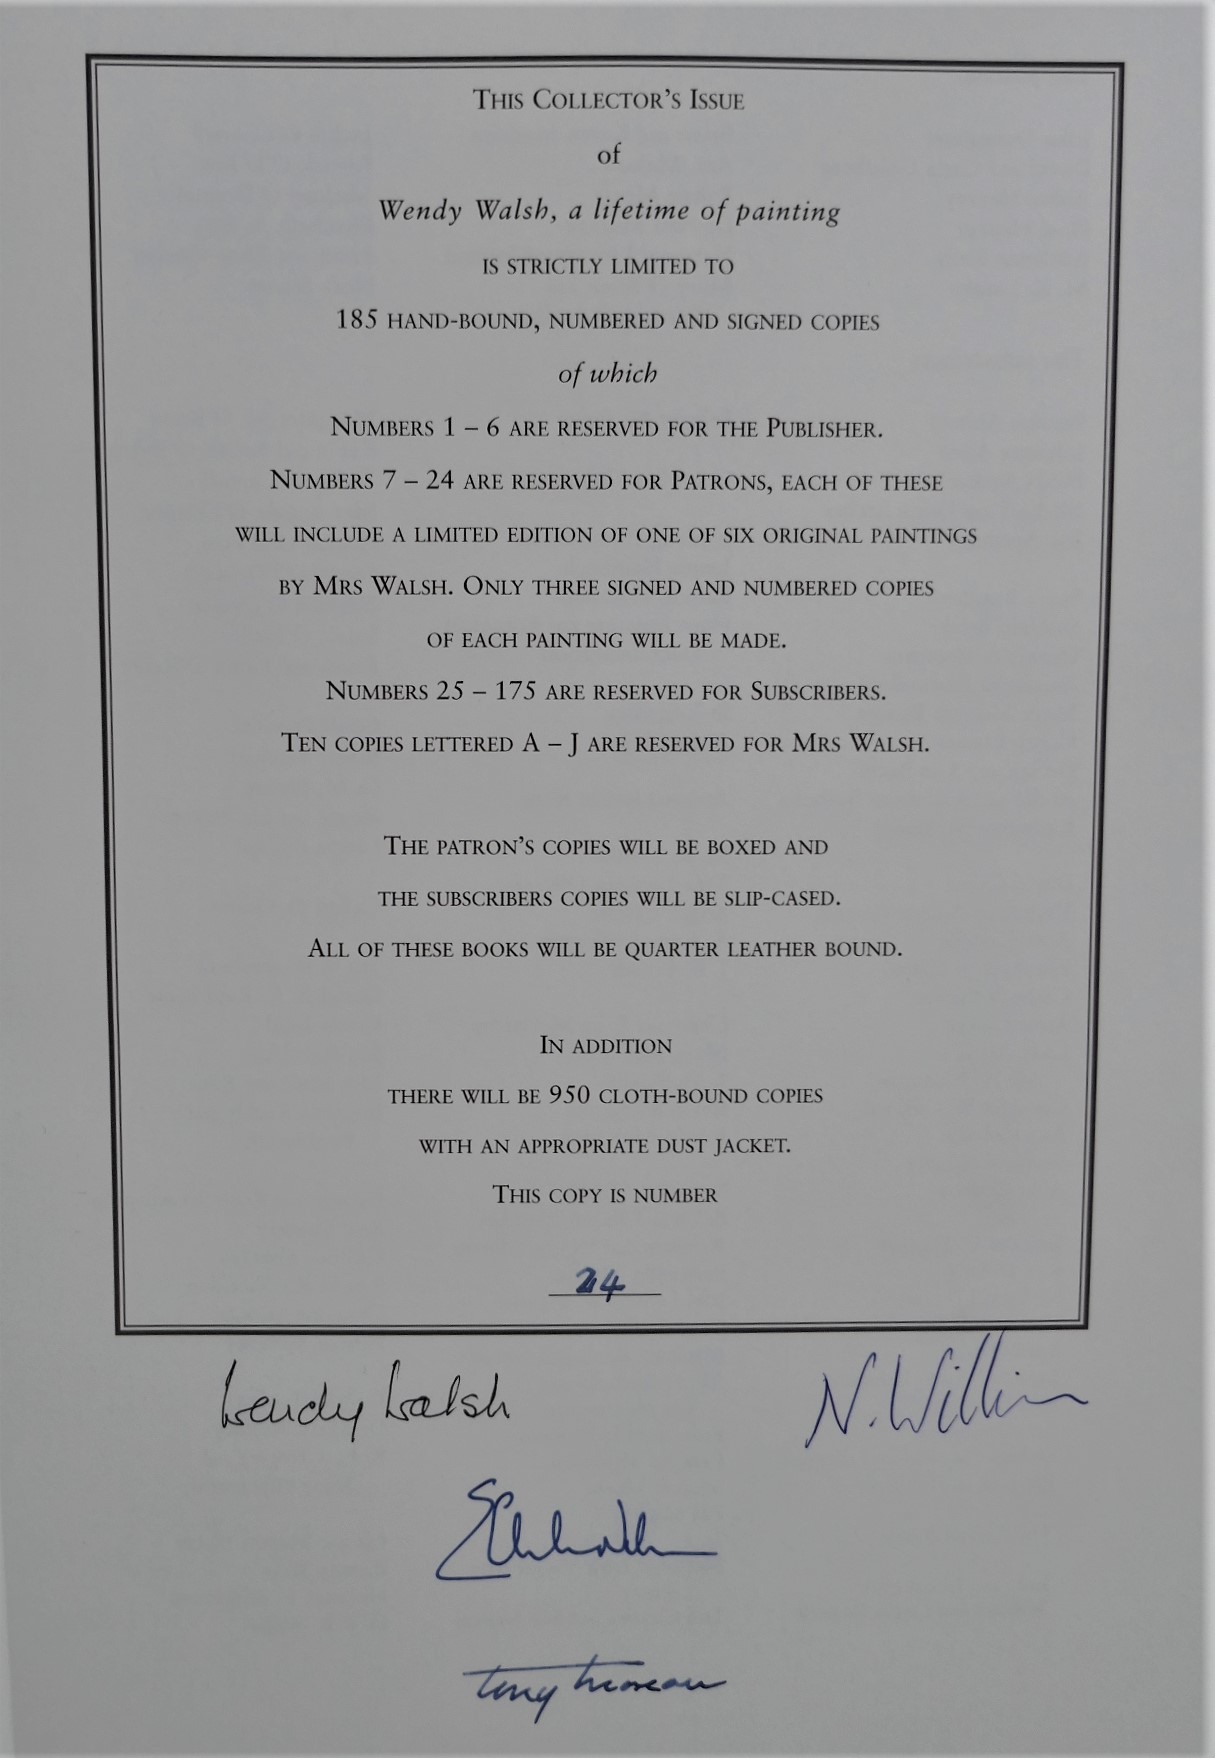 THIS COLLECTOR'S ISSUE
of
Wendy Walsh, a lifetime of painting
IS STRICTLY LIMITED TO
185 HAND-BOUND, NUMBERED AND SIGNED COPIES
of which
NUMBERS 1 – 6 ARE RESERVED FOR THE PUBLISHER.
NUMBERS 7 – 24 ARE RESERVED FOR PATRONS, EACH OF THESE
WILL INCLUDE A LIMITED EDITION OF ONE OF SIX ORIGINAL PAINTINGS
BY MRS WALSH. ONLY THREE SIGNED AND NUMBERED COPIES
OF EACH PAINTING WILL BE MADE.
NUMBERS 25 – 175 ARE RESERVED FOR SUBSCRIBERS.
TEN COPIES LETTERED A – J ARE RESERVED FOR MRS WALSH.
THE PATRON'S COPIES WILL BE BOXED AND
THE SUBSCRIBERS COPIES WILL BE SLIP-CASED.
ALL OF THESE BOOKS WILL BE QUARTER LEATHER BOUND.
IN ADDITION
THERE WILL BE 950 CLOTH-BOUND COPIES
WITH AN APPROPRIATE DUST JACKET.
THIS COPY IS NUMBER
24
Wendy Walsh
N.
Tony